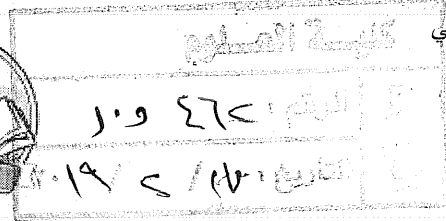 كلية العلوم
الرقم : ٤٦٢ و.د
التاريخ : / ٢ / ٢٠١٩